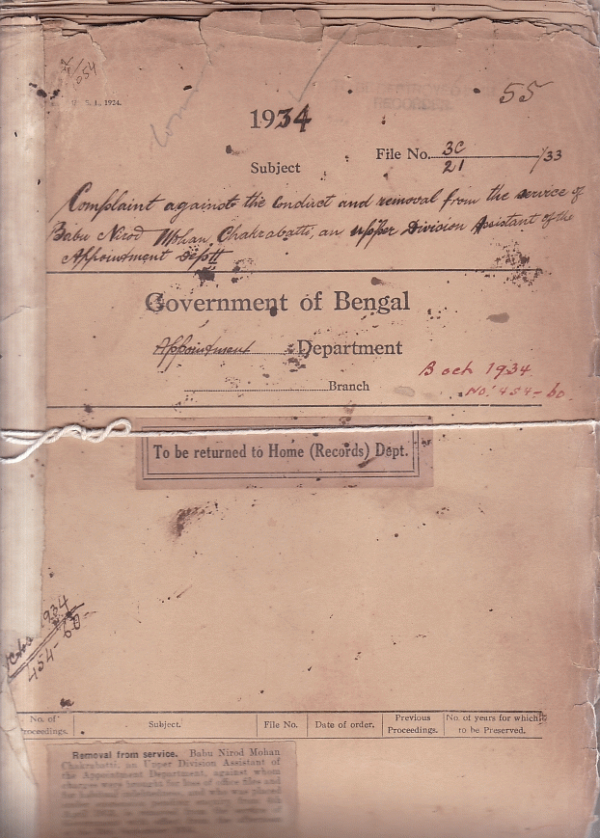 1054
55
1934
File No. 3C/21/33
Subject
Complaint against the conduct and removal from the service of
Babu Nirod Mohan Chakrabatti, an upper Division Assistant of the
Appointment Deptt
Government of Bengal
Appointment Department
Branch
B Och 1934
No. 454-60
To be returned to Home (Records) Dept.
1934
454-60
No. of Proceedings. Subject. File No. Date of order. Previous Proceedings. No. of years for which to be Preserved.
Removal from service. Babu Nirod Mohan
Chakrabatti, an Upper Division Assistant of
the Appointment Department, against whom
charges were brought for loss of office files and